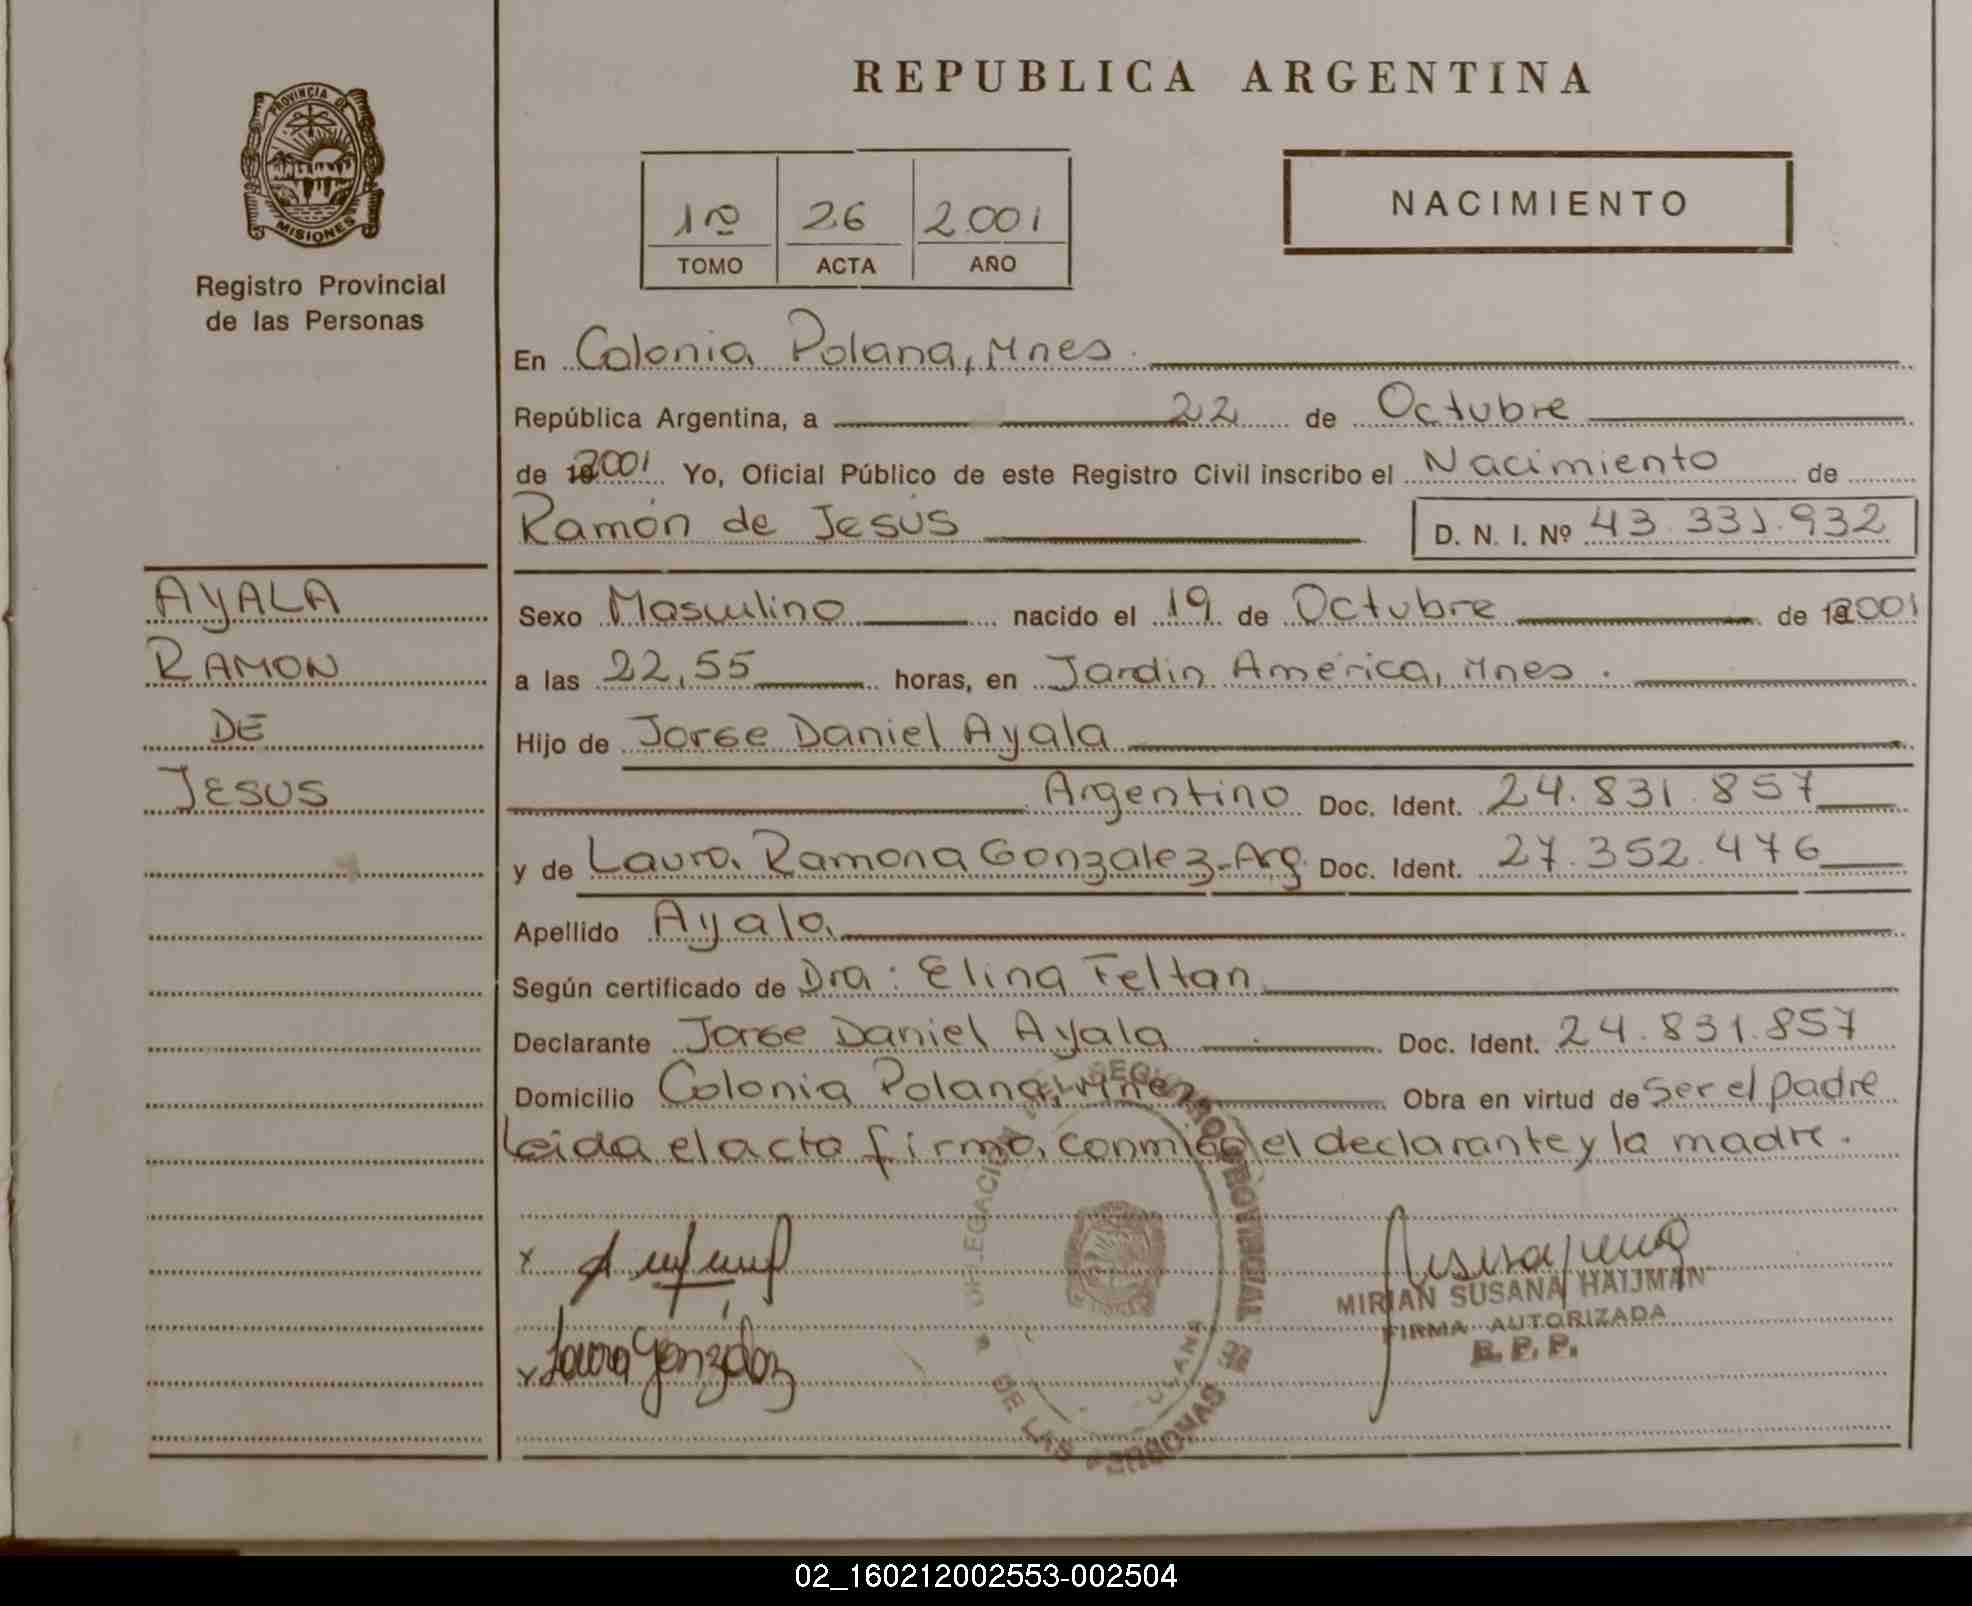 REPUBLICA ARGENTINA
PROVINCIA DE
MISIONES
Registro Provincial
de las Personas
1º 26 2.001
TOMO ACTA AÑO
NACIMIENTO
En Colonia Polana, Mnes.
República Argentina, a 22 de Octubre
de 2001 Yo, Oficial Público de este Registro Civil inscribo el Nacimiento de
Ramón de Jesús D. N. I. Nº 43.331.932
AYALA
RAMON
DE
JESUS
Sexo Masculino nacido el 19 de Octubre de 2001
a las 22,55 horas, en Jardin América, Mnes.
Hijo de Jorge Daniel Ayala
Argentino Doc. Ident. 24.831.857
y de Laura Ramona Gonzalez-Arg. Doc. Ident. 27.352.476
Apellido Ayala
Según certificado de Dra: Elina Feltan
Declarante Jorge Daniel Ayala Doc. Ident. 24.831.857
Domicilio Colonia Polana, Mnes Obra en virtud de ser el padre
Leida el acta firma conmigo el declarante y la madre.
DELEGACION DEL REGISTRO PROVINCIAL DE LAS PERSONAS
x
x Laura Gonzalez
MIRIAN SUSANA HAIJMAN
FIRMA AUTORIZADA
R. P. P.
02_160212002553-002504